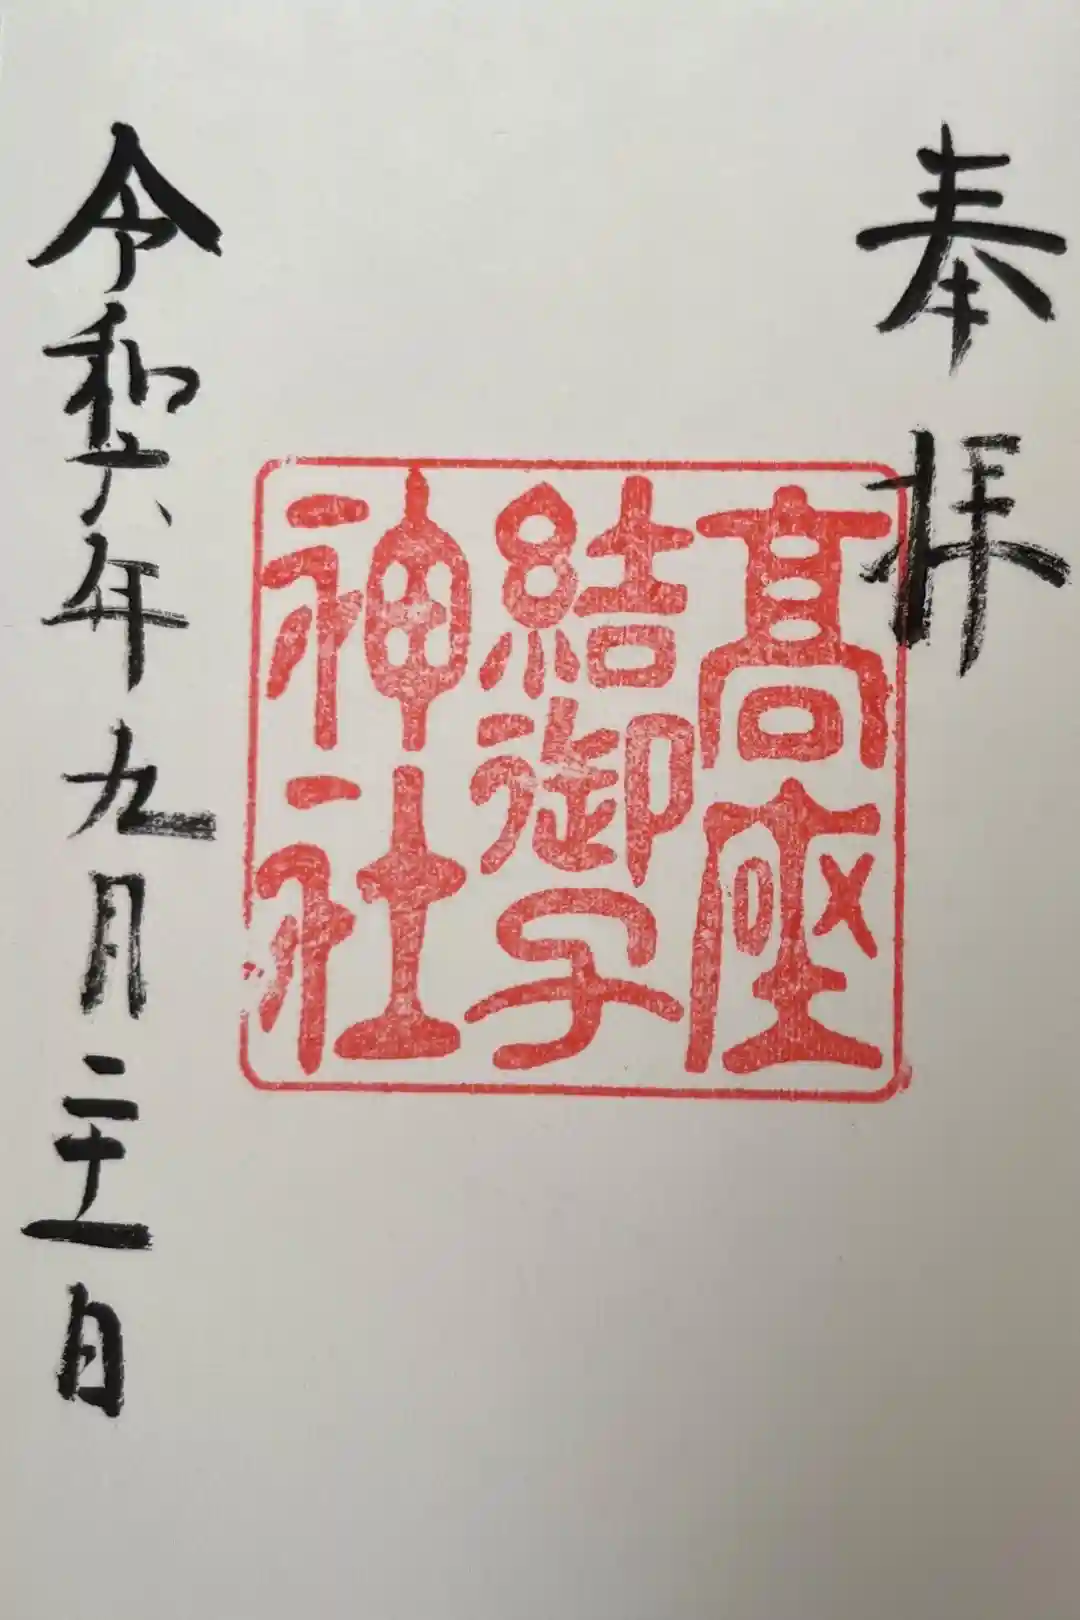 奉拝
高座
結御子
神社
令和六年九月二十一日